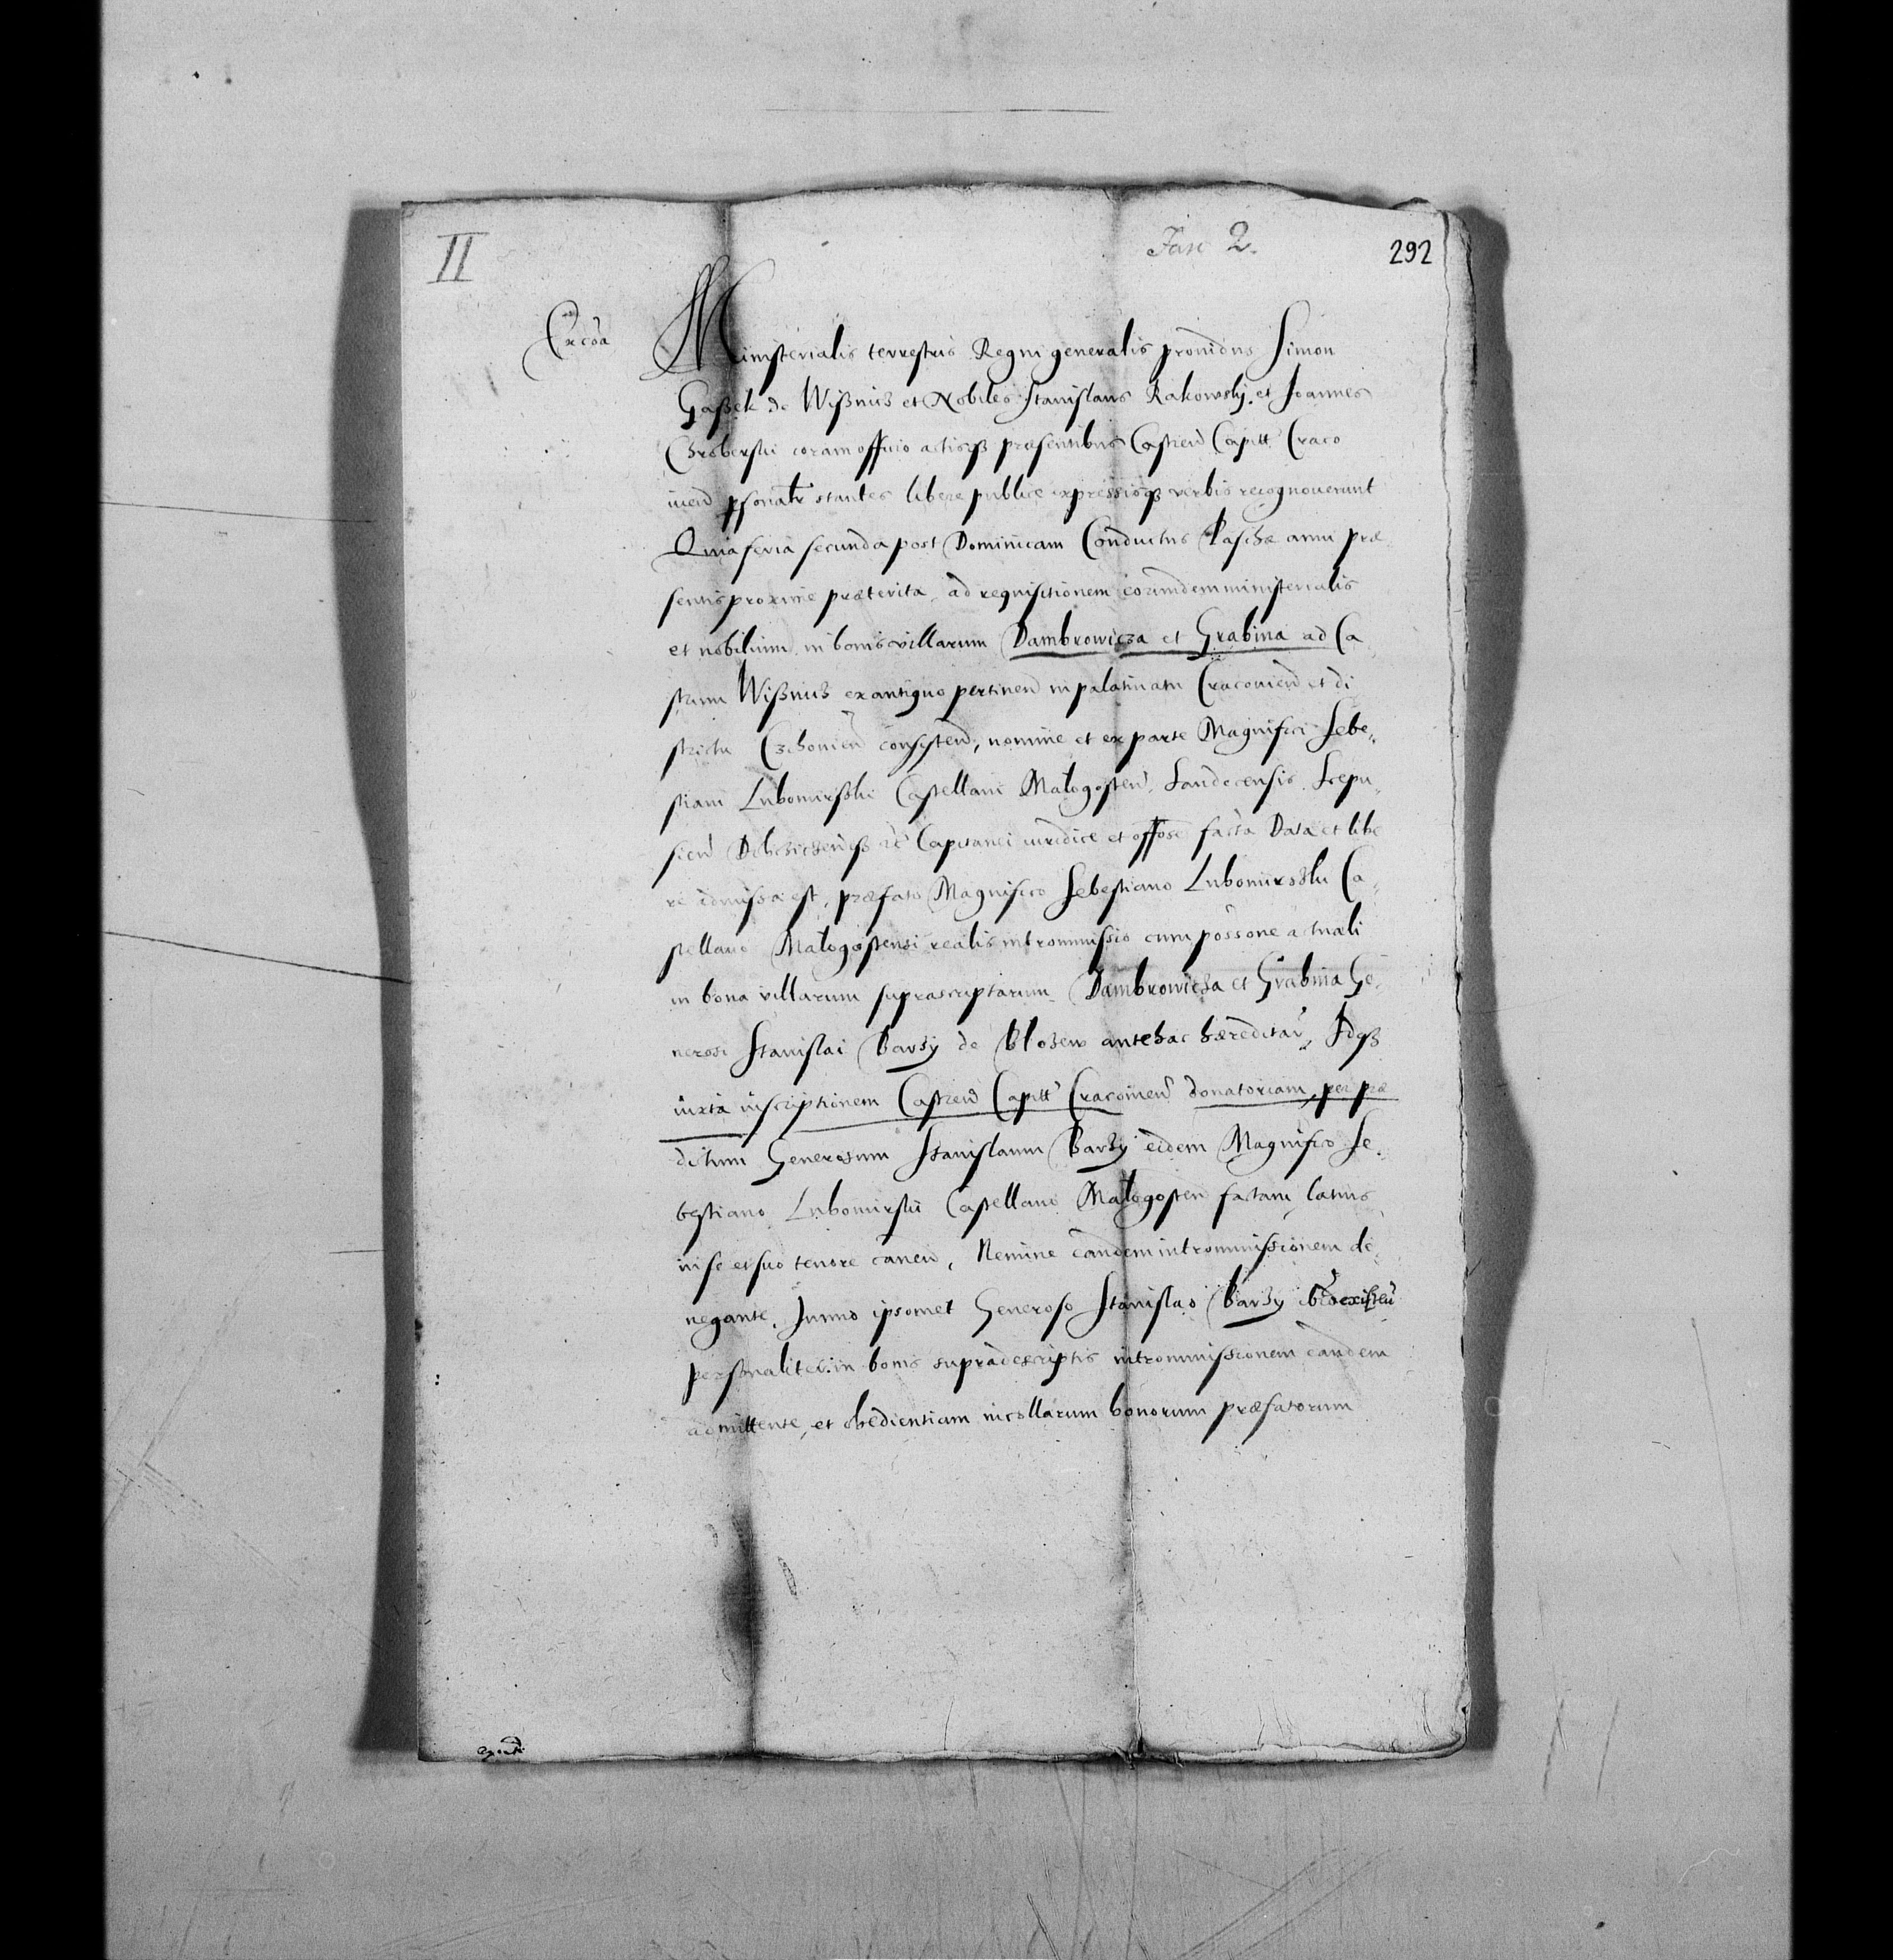 II
Fasc 2.
292
Ministerialis terrestris Regni generalis providus Simon
Gaßek de Wißnicz et Nobiles Stanislaus Rakowsky et Joannes
Chroberski coram officio actisqз præsentibus Castren Capitt Craco
vien psonałr stantes libere publice expressisqз verbis recognoverunt
Quia feria secunda post Dominicam Conductus Paschæ anni præ
sentis proxime præterita, ad requisitionem eorumdem ministerialis
et nobilium in bonis villarum Dambrowicza et Grabina ad Ca
strum Wißnicz ex antiquo pertinen in palatinatu Cracovien et di
strictu Czchovien consisten, nomine et ex parte Magnifici Sebe,,
stiani Lubomirski Castellani Małogosten, Sandecensis, Scepu,,
sien Dobczicensqз zc Capitanei iuridice et offose facta Data et libe
re admissa est, præfato Magnifico Sebestiano Lubomirszki Ca,,
stellano Małogostensi realis intromissio cum possone actuali
in bona villarum suprascriptarum Dambrowicza et Grabina Ge,,
nerosi Stanislai Barzy de Błozew antehac hæreditar, Idqз
iuxta inscriptionem Castren Capitt Cracovien donatoriam, per præ
dictum Generosum Stanislaum Barzy eidem Magnifico Se,,
bestiano Lubomirski Castellano Małogosten factam, latius
in se et suo tenore canen, Nemine eandem intromissionem de,,
negante, Immo ipsomet Generoso Stanislao Barzy ibidem existen
personaliter in bonis supradescriptis intromissionem eandem
admittente, et obedientiam incollarum bonorum præfatorum